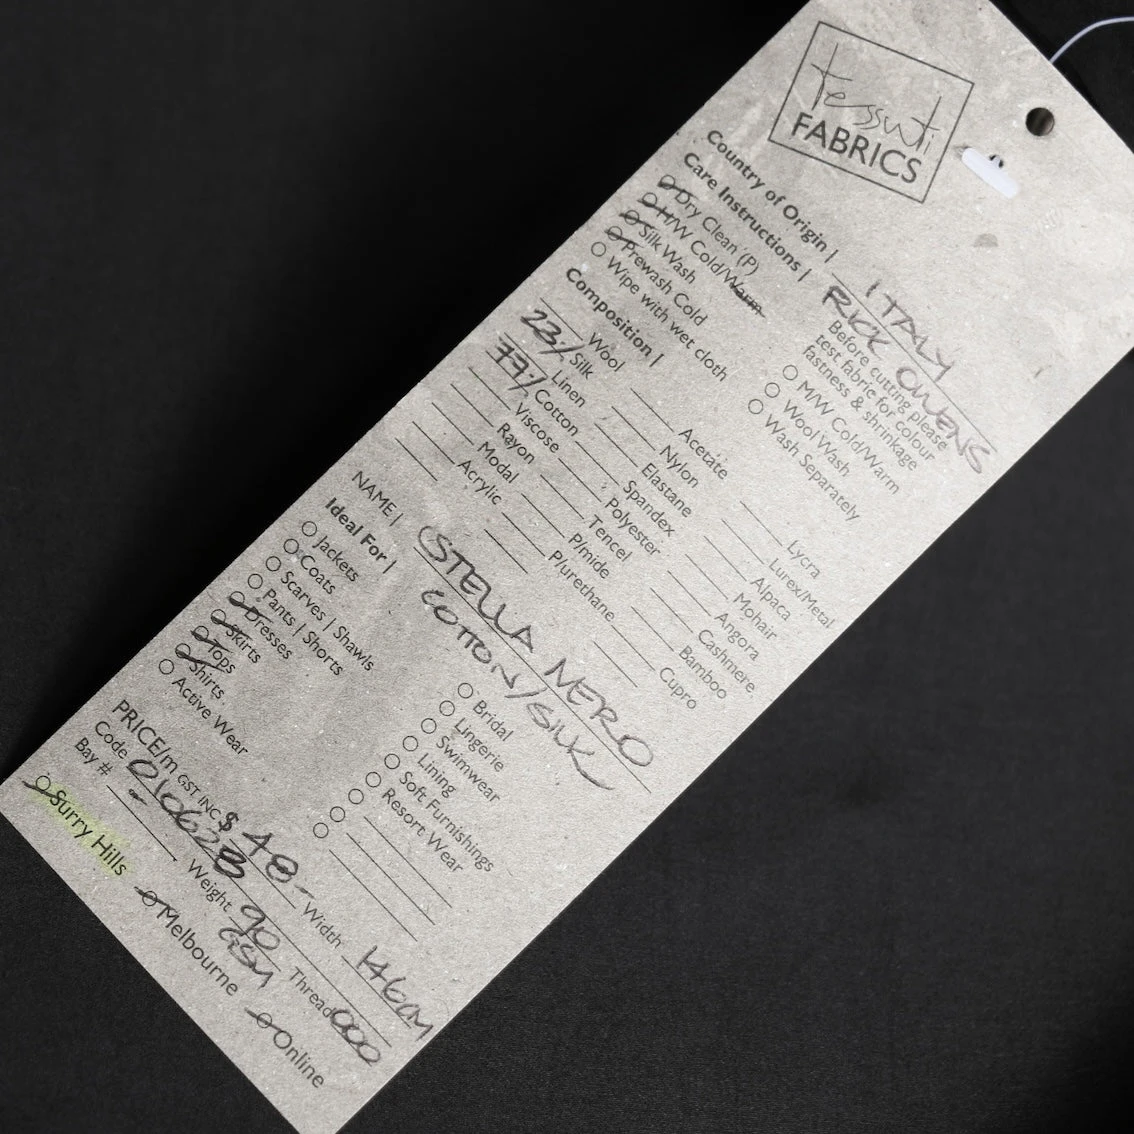 tessuti
FABRICS
Country of Origin | ITALY
RICK OWENS
Care Instructions |
Dry Clean (P)
H/W Cold/Warm
Silk Wash
Prewash Cold
Wipe with wet cloth
Before cutting please
test fabric for colour
fastness & shrinkage
M/W Cold/Warm
Wool Wash
Wash Separately
Composition |
Wool
23% Silk
Linen
77% Cotton
Viscose
Rayon
Modal
Acrylic
Acetate
Nylon
Elastane
Spandex
Polyester
Tencel
P/mide
P/urethane
Lycra
Lurex/Metal
Alpaca
Mohair
Angora
Cashmere
Bamboo
Cupro
NAME | STELLA NERO
COTTON/SILK
Ideal For |
Jackets
Coats
Scarves | Shawls
Pants | Shorts
Dresses
Skirts
Tops
Shirts
Active Wear
Bridal
Lingerie
Swimwear
Lining
Soft Furnishings
Resort Wear
PRICE/m GST INC $48- Width 146CM
Code 010628 Weight 90 GSM Thread 000
Bay # -
Surry Hills Melbourne Online